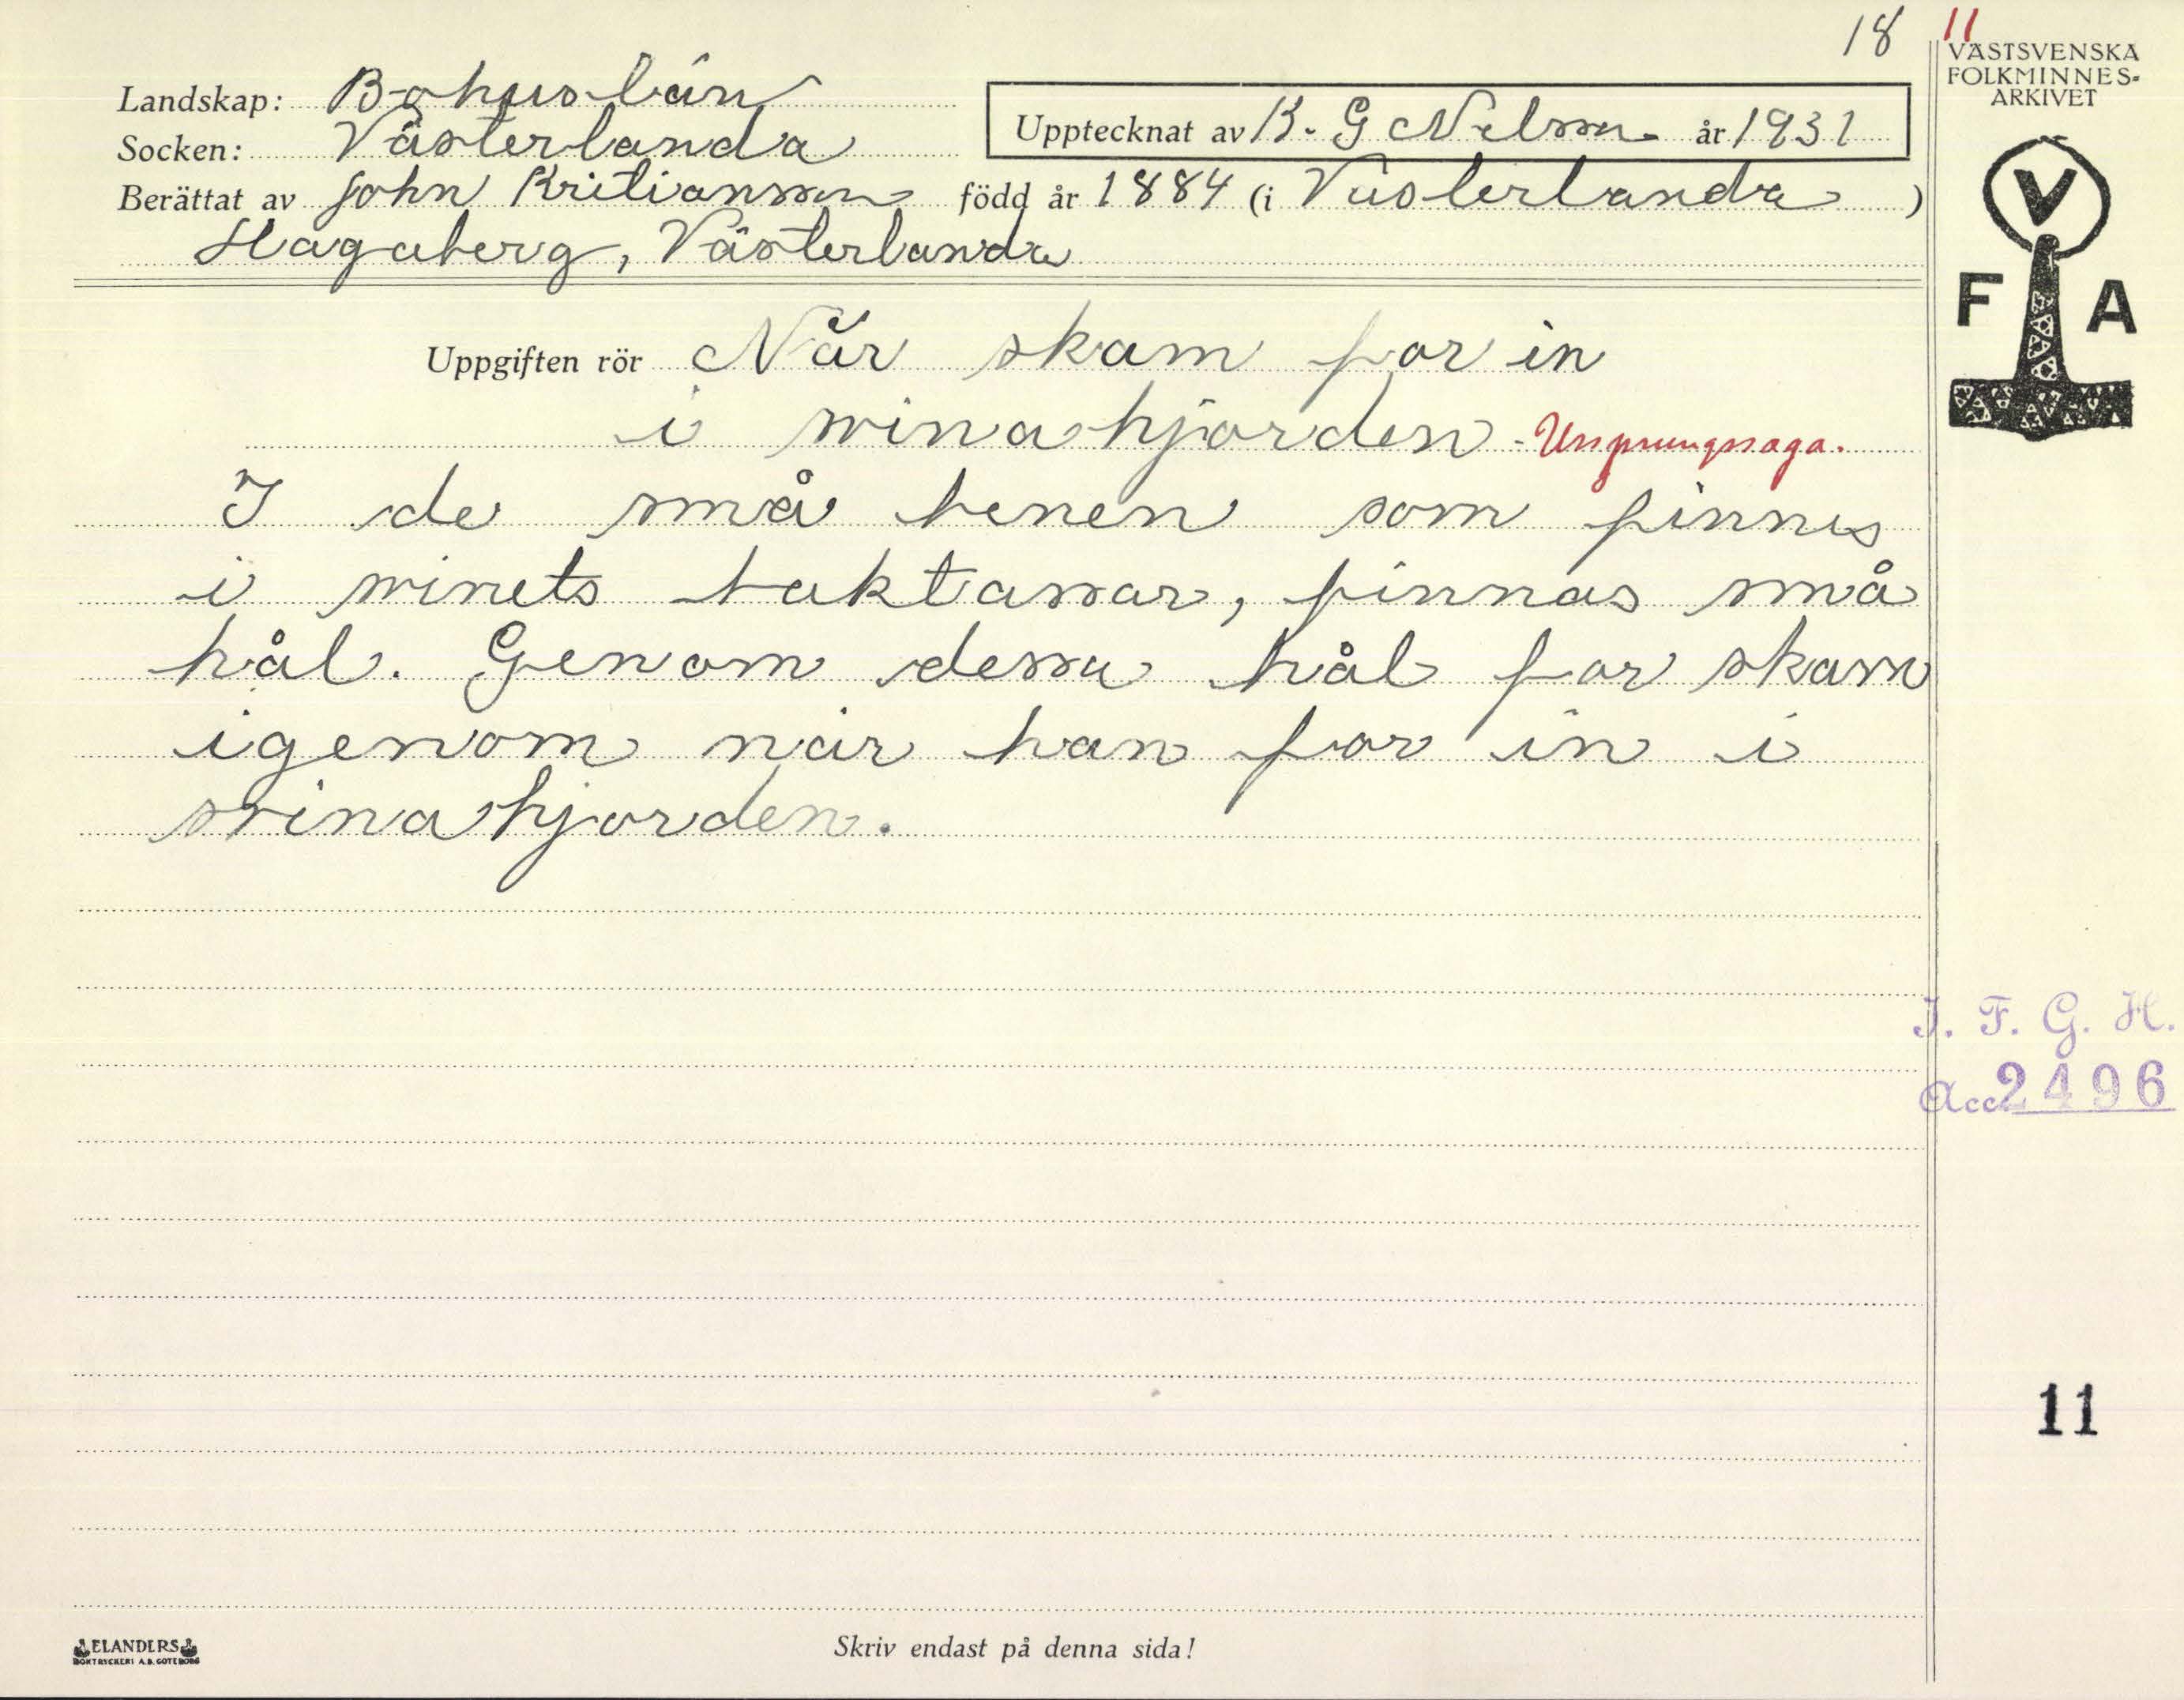 18 11
VÄSTSVENSKA
FOLKMINNES-
ARKIVET
Landskap: Bohuslän
Socken: Västerlanda
Upptecknat av K. G Nilson år 1931
Berättat av John Kritiansson född år 1884 (i Västerlanda )
Hagaberg, Västerlanda
V
F A
Uppgiften rör När skam for in
i svinahjorden - Ursprungssaga.
I de små benen som finnes
i svinets baktassar, finnas små
hål. Genom dessa hål for skam
igenom när han for in i
svinahjorden.
I. F. G. H.
Acc. 2496
11
ELANDERS
BOKTRYCKERI A.B. GÖTEBORG
Skriv endast på denna sida!